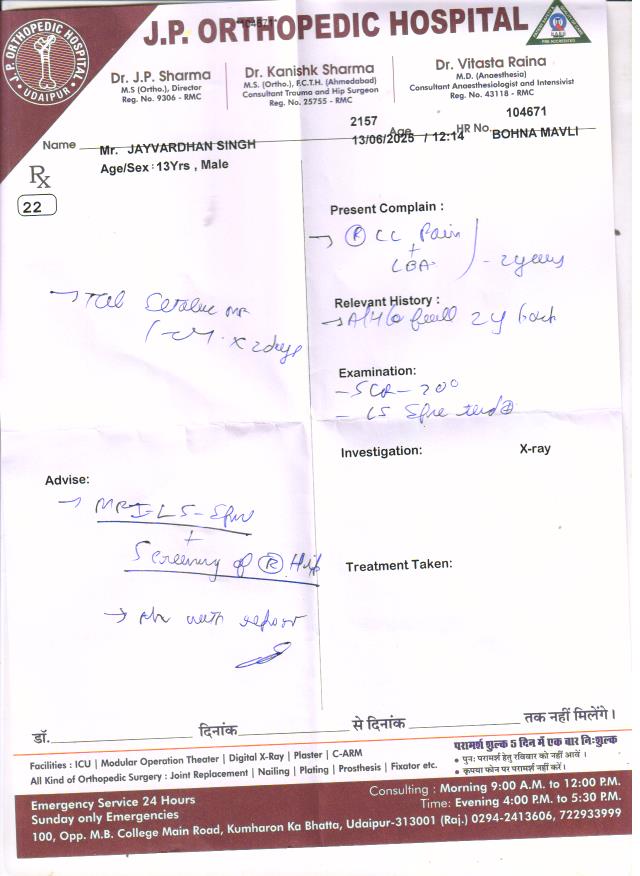 J.P. ORTHOPEDIC HOSPITAL
J.P. ORTHOPEDIC HOSPITAL
UDAIPUR
Dr. J.P. Sharma
M.S (Ortho.), Director
Reg. No. 9306 - RMC
Dr. Kanishk Sharma
M.S. (Ortho.), F.C.T.H. (Ahmedabad)
Consultant Trauma and Hip Surgeon
Reg. No. 25755 - RMC
Dr. Vitasta Raina
M.D. (Anaesthesia)
Consultant Anaesthesiologist and Intensivist
Reg. No. 43118 - RMC
2157 104671
Name Mr. JAYVARDHAN SINGH 13/06/2025 Age / 12:14 HR No. BOHNA MAVLI
Age/Sex : 13Yrs , Male
Rx
22
Present Complain :
→ (R) CC Pain
+
LBA - 2 years
Relevant History :
2y back
→ Tab
x 2 days
Examination:
- 20°
- LS Spine
Investigation: X-ray
Advise:
→ MRI-LS-Spine
+
Screening of (R) Hip
Treatment Taken:
→ with report
डॉ. दिनांक से दिनांक तक नहीं मिलेंगे।
Facilities : ICU | Modular Operation Theater | Digital X-Ray | Plaster | C-ARM
All Kind of Orthopedic Surgery : Joint Replacement | Nailing | Plating | Prosthesis | Fixator etc.
परामर्श शुल्क 5 दिन में एक बार निःशुल्क
• पुनः परामर्श हेतु रविवार को नहीं आवें ।
• कृपया फोन पर परामर्श नहीं करें।
Emergency Service 24 Hours
Sunday only Emergencies
Consulting : Morning 9:00 A.M. to 12:00 P.M.
Time: Evening 4:00 P.M. to 5:30 P.M.
100, Opp. M.B. College Main Road, Kumharon Ka Bhatta, Udaipur-313001 (Raj.) 0294-2413606, 722933999